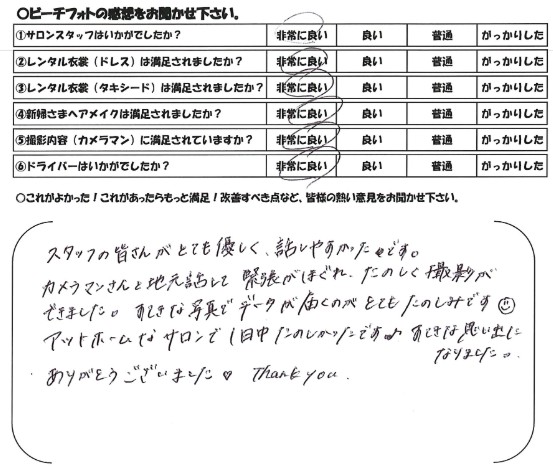 ○ビーチフォトの感想をお聞かせ下さい。
①サロンスタッフはいかがでしたか？ 非常に良い 良い 普通 がっかりした
②レンタル衣裳（ドレス）は満足されましたか？ 非常に良い 良い 普通 がっかりした
③レンタル衣裳（タキシード）は満足されましたか？ 非常に良い 良い 普通 がっかりした
④新婦さまヘアメイクは満足されましたか？ 非常に良い 良い 普通 がっかりした
⑤撮影内容（カメラマン）に満足されていますか？ 非常に良い 良い 普通 がっかりした
⑥ドライバーはいかがでしたか？ 非常に良い 良い 普通 がっかりした
○これがよかった！これがあったらもっと満足！改善すべき点など、皆様の熱い意見をお聞かせ下さい。
スタッフの皆さんがとても優しく、話しやすかったです。
カメラマンさんと地元話して緊張がほぐれ、たのしく撮影が
できました。すてきな写真でデータが届くのがとてもたのしみです☺
アットホームなサロンで1日中たのしかったです♪ すてきな思い出に
なりました。
ありがとうございました♥ Thank you.